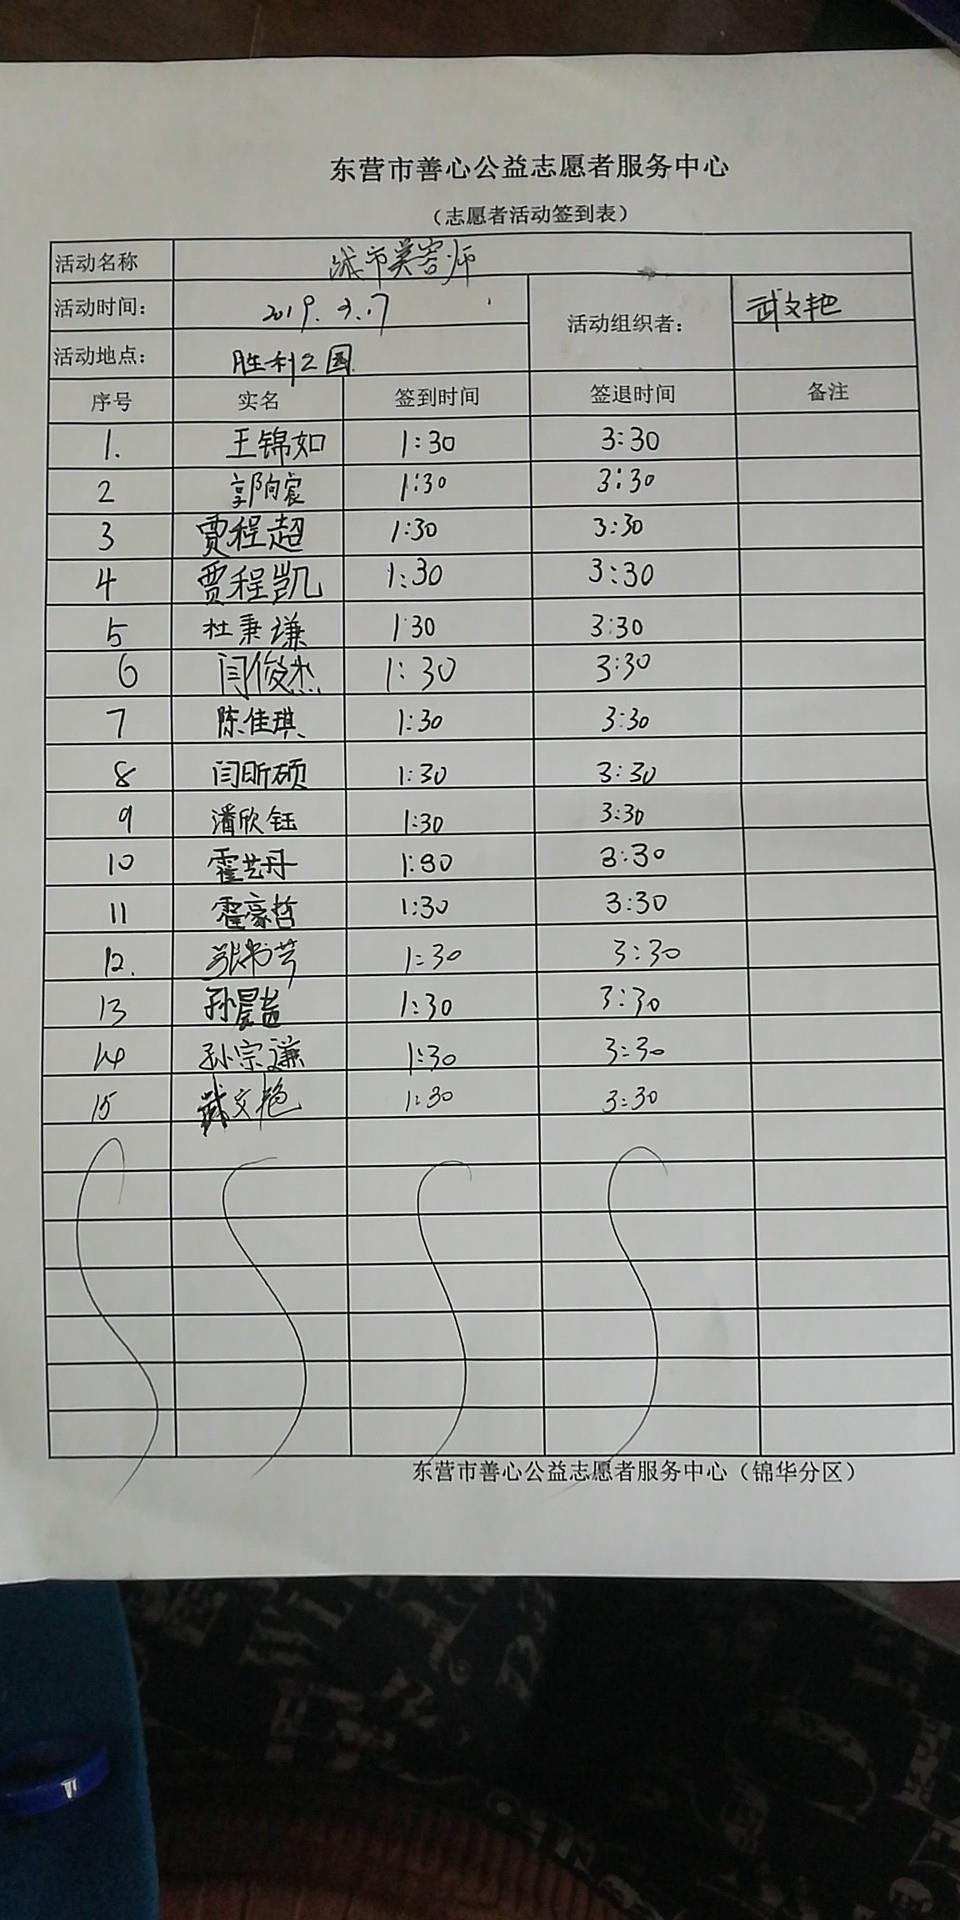 东营市善心公益志愿者服务中心
（志愿者活动签到表）
活动名称 城市美容师
活动时间： 2019.3.17 活动组织者： 武文艳
活动地点： 胜利之园
序号 实名 签到时间 签退时间 备注
1. 王锦如 1:30 3:30
2 郭向宸 1:30 3:30
3 贾程超 1:30 3:30
4 贾程凯 1:30 3:30
5 杜秉谦 1:30 3:30
6 闫俊杰 1:30 3:30
7 陈佳琪 1:30 3:30
8 闫昕硕 1:30 3:30
9 潘欣钰 1:30 3:30
10 霍艺丹 1:30 3:30
11 霍豪哲 1:30 3:30
12. 张书芳 1:30 3:30
13 孙 1:30 3:30
14 孙宗谦 1:30 3:30
15 武文艳 1:30 3:30
东营市善心公益志愿者服务中心（锦华分区）